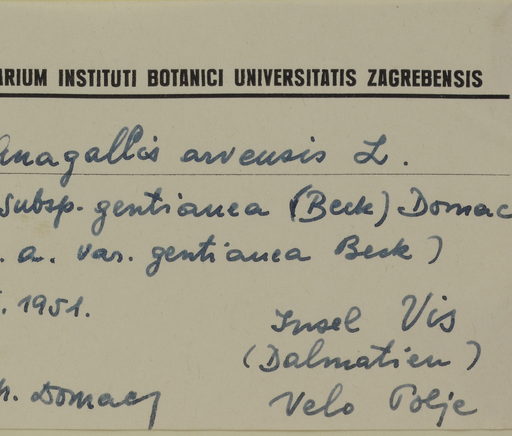 ARIUM INSTITUTI BOTANICI UNIVERSITATIS ZAGREBENSIS
Anagallis arvensis L.
subsp. gentianea (Beck) Domac
. a. var. gentianea Beck)
. 1951.
Insel Vis
(Dalmatien)
. Domac
Velo Polje